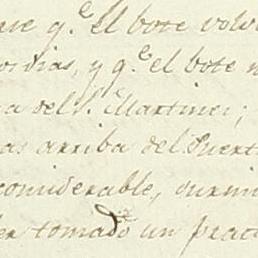 que q.e El bote volv
ordias, y q.e el bote n
a del S. Martinez;
as arriba del Puert
considerable, durmi
er tomado un pract